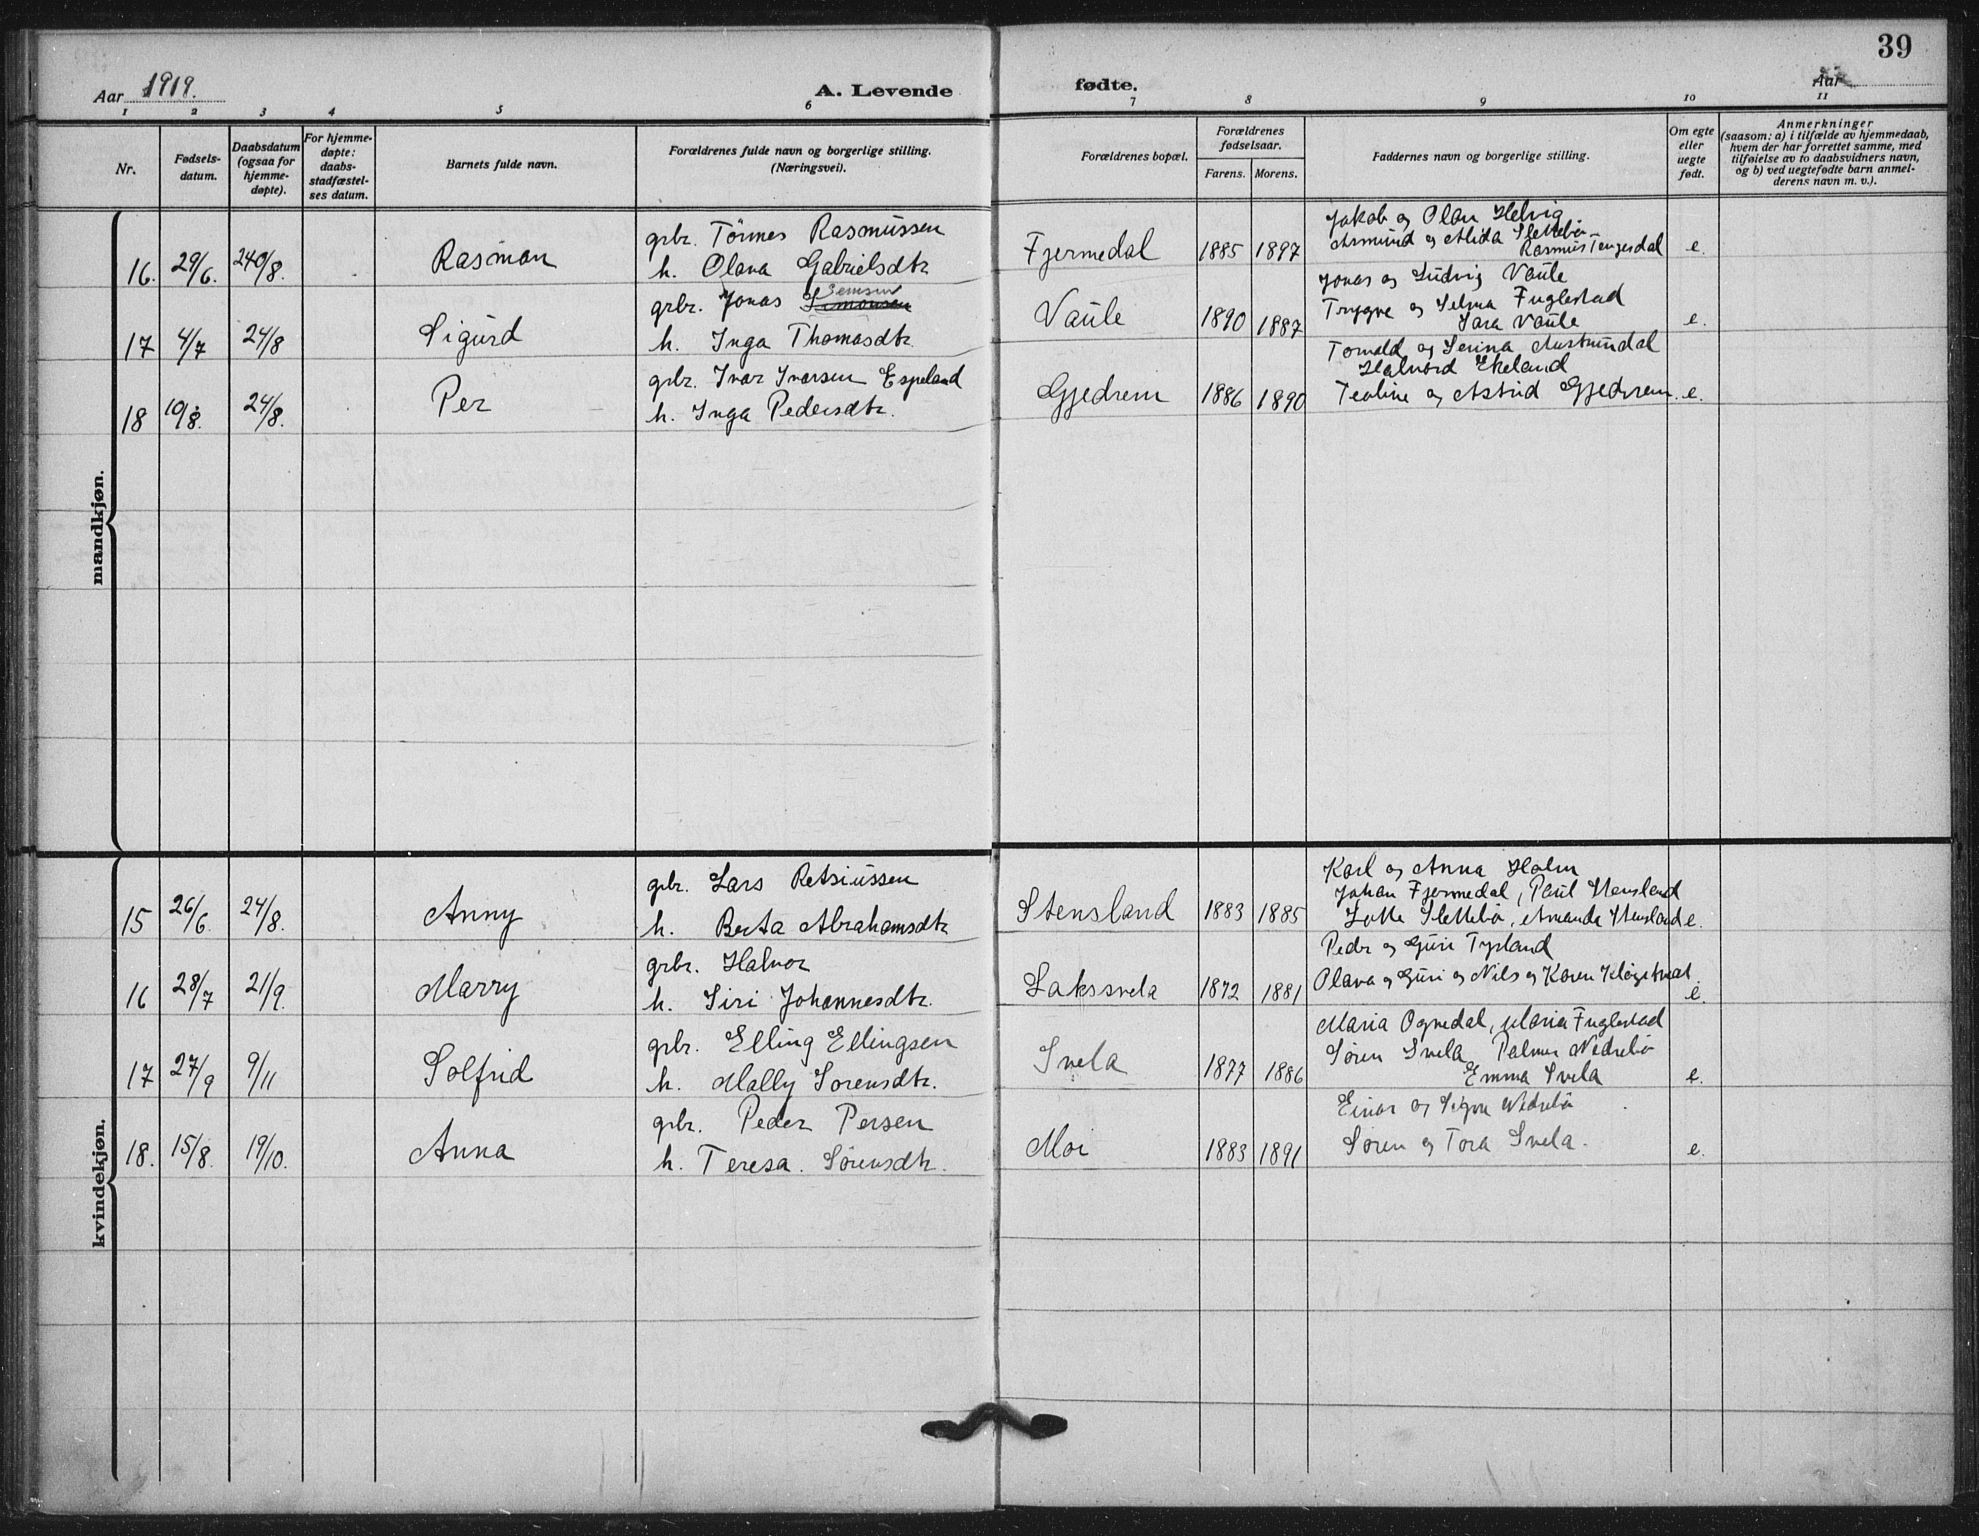 39
Aar 1919.
A. Levende fødte.
Aar
1 2 3 4 5 6 7 8 9 10 11
Nr.
Fødsels-
datum.
Daabsdatum
(ogsaa for
hjemme-
døpte).
For hjemme-
døpte:
daabs-
stadfæstel-
ses datum.
Barnets fulde navn.
Forældrenes fulde navn og borgerlige stilling.
(Næringsvei).
Forældrenes bopæl.
Forældrenes
fødselsaar.
Farens. Morens.
Faddernes navn og borgerlige stilling.
Om egte
eller
uegte
født.
Anmerkninger
(saasom: a) i tilfælde av hjemmedaab,
hvem der har forrettet samme, med
tilføielse av to daabsvidners navn,
og b) ved uegtefødte barn anmel-
derens navn m. v.).
mandkjøn.
16. 29/6. 240/8. Rasman
gbr. Tönnes Rasmussen
h. Olava Gabrielsdtr
Fjermedal 1885 1897
Jakob og Olav Helvig
Asmund og Alida Slettebø
Rasmus Tengesdal e.
17 4/7 24/8 Sigurd
gbr. Jonas Simonsen
h. Inga Thomasdtr.
Vaule 1890 1887
Jonas og Ludvig Vaule
Trygve og Selma Fuglestad
Sara Vaule e.
18 10/8. 24/8. Per
gbr. Ivar Ivarsen Espeland
h. Inga Pedersdtr.
Gjedrem 1886 1890
Tomald og Serina Austrumdal
Halvard Ekeland
Teoline og Astrid Gjedrem. e.
kvindekjøn.
15 26/6. 24/8. Anny
gbr. Lars Retsiussen
h. Berta Abrahamsdtr
Stensland 1883 1885
Karl og Anna Holm
Johan Fjermedal, Paul Stensland
Lotte Slettebø, Amanda Stensland e.
16 28/7 21/9. Marry
gbr. Halvor
h. Siri Johannesdtr.
Lakssvela 1872 1881
Peder og Guri Tysland
Olava og Guri og Nils og Karen
e.
17 27/9 9/11 Solfrid
gbr. Elling Ellingsen
h. Mally Sorensdtr.
Svela 1877 1886
Maria Ognedal, Maria Fuglestad
Søren Svela Palmer Nedrebø
Emma Svela e.
18. 15/8. 19/10. Anna
gbr. Peder Persen
h. Teresa. Sørensdtr.
Moi 1883 1891
Einar og Signe Nedrebø
Søren og Tora Svela. e.